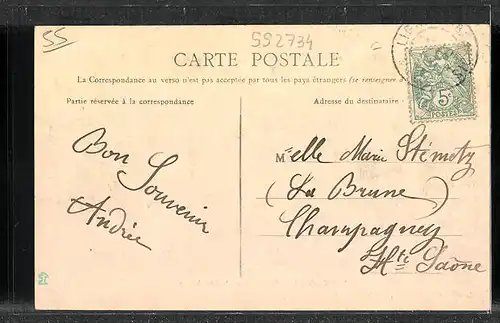 55
552734
CARTE POSTALE
La Correspondance au verso n'est pas acceptée par tous les pays étrangers (se renseigner à
Partie réservée à la correspondance
Adresse du destinataire
5c
POSTES
Bon
Souvenir
Andrée
Melle Marie Stémetz
(La Brune)
Champagney
Hte Saône